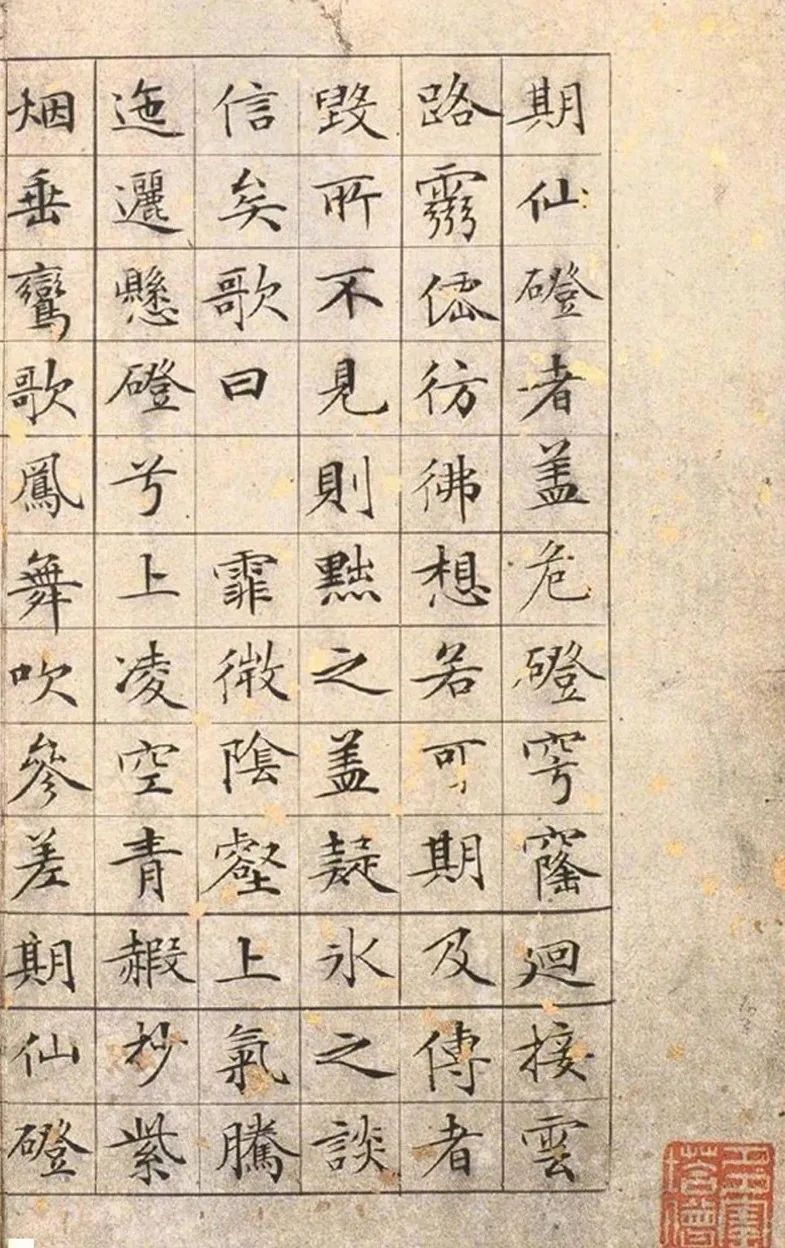 期仙磴者盖危磴穹窿廻接雲
路彷彿想若可期及傳者
毀所不見則黜之盖疑氷之談
信矣歌曰 霏微陰壑上氣騰
迤邐懸磴兮上凌空青赮杪紫
烟垂鸞歌鳳舞吹參差期仙磴